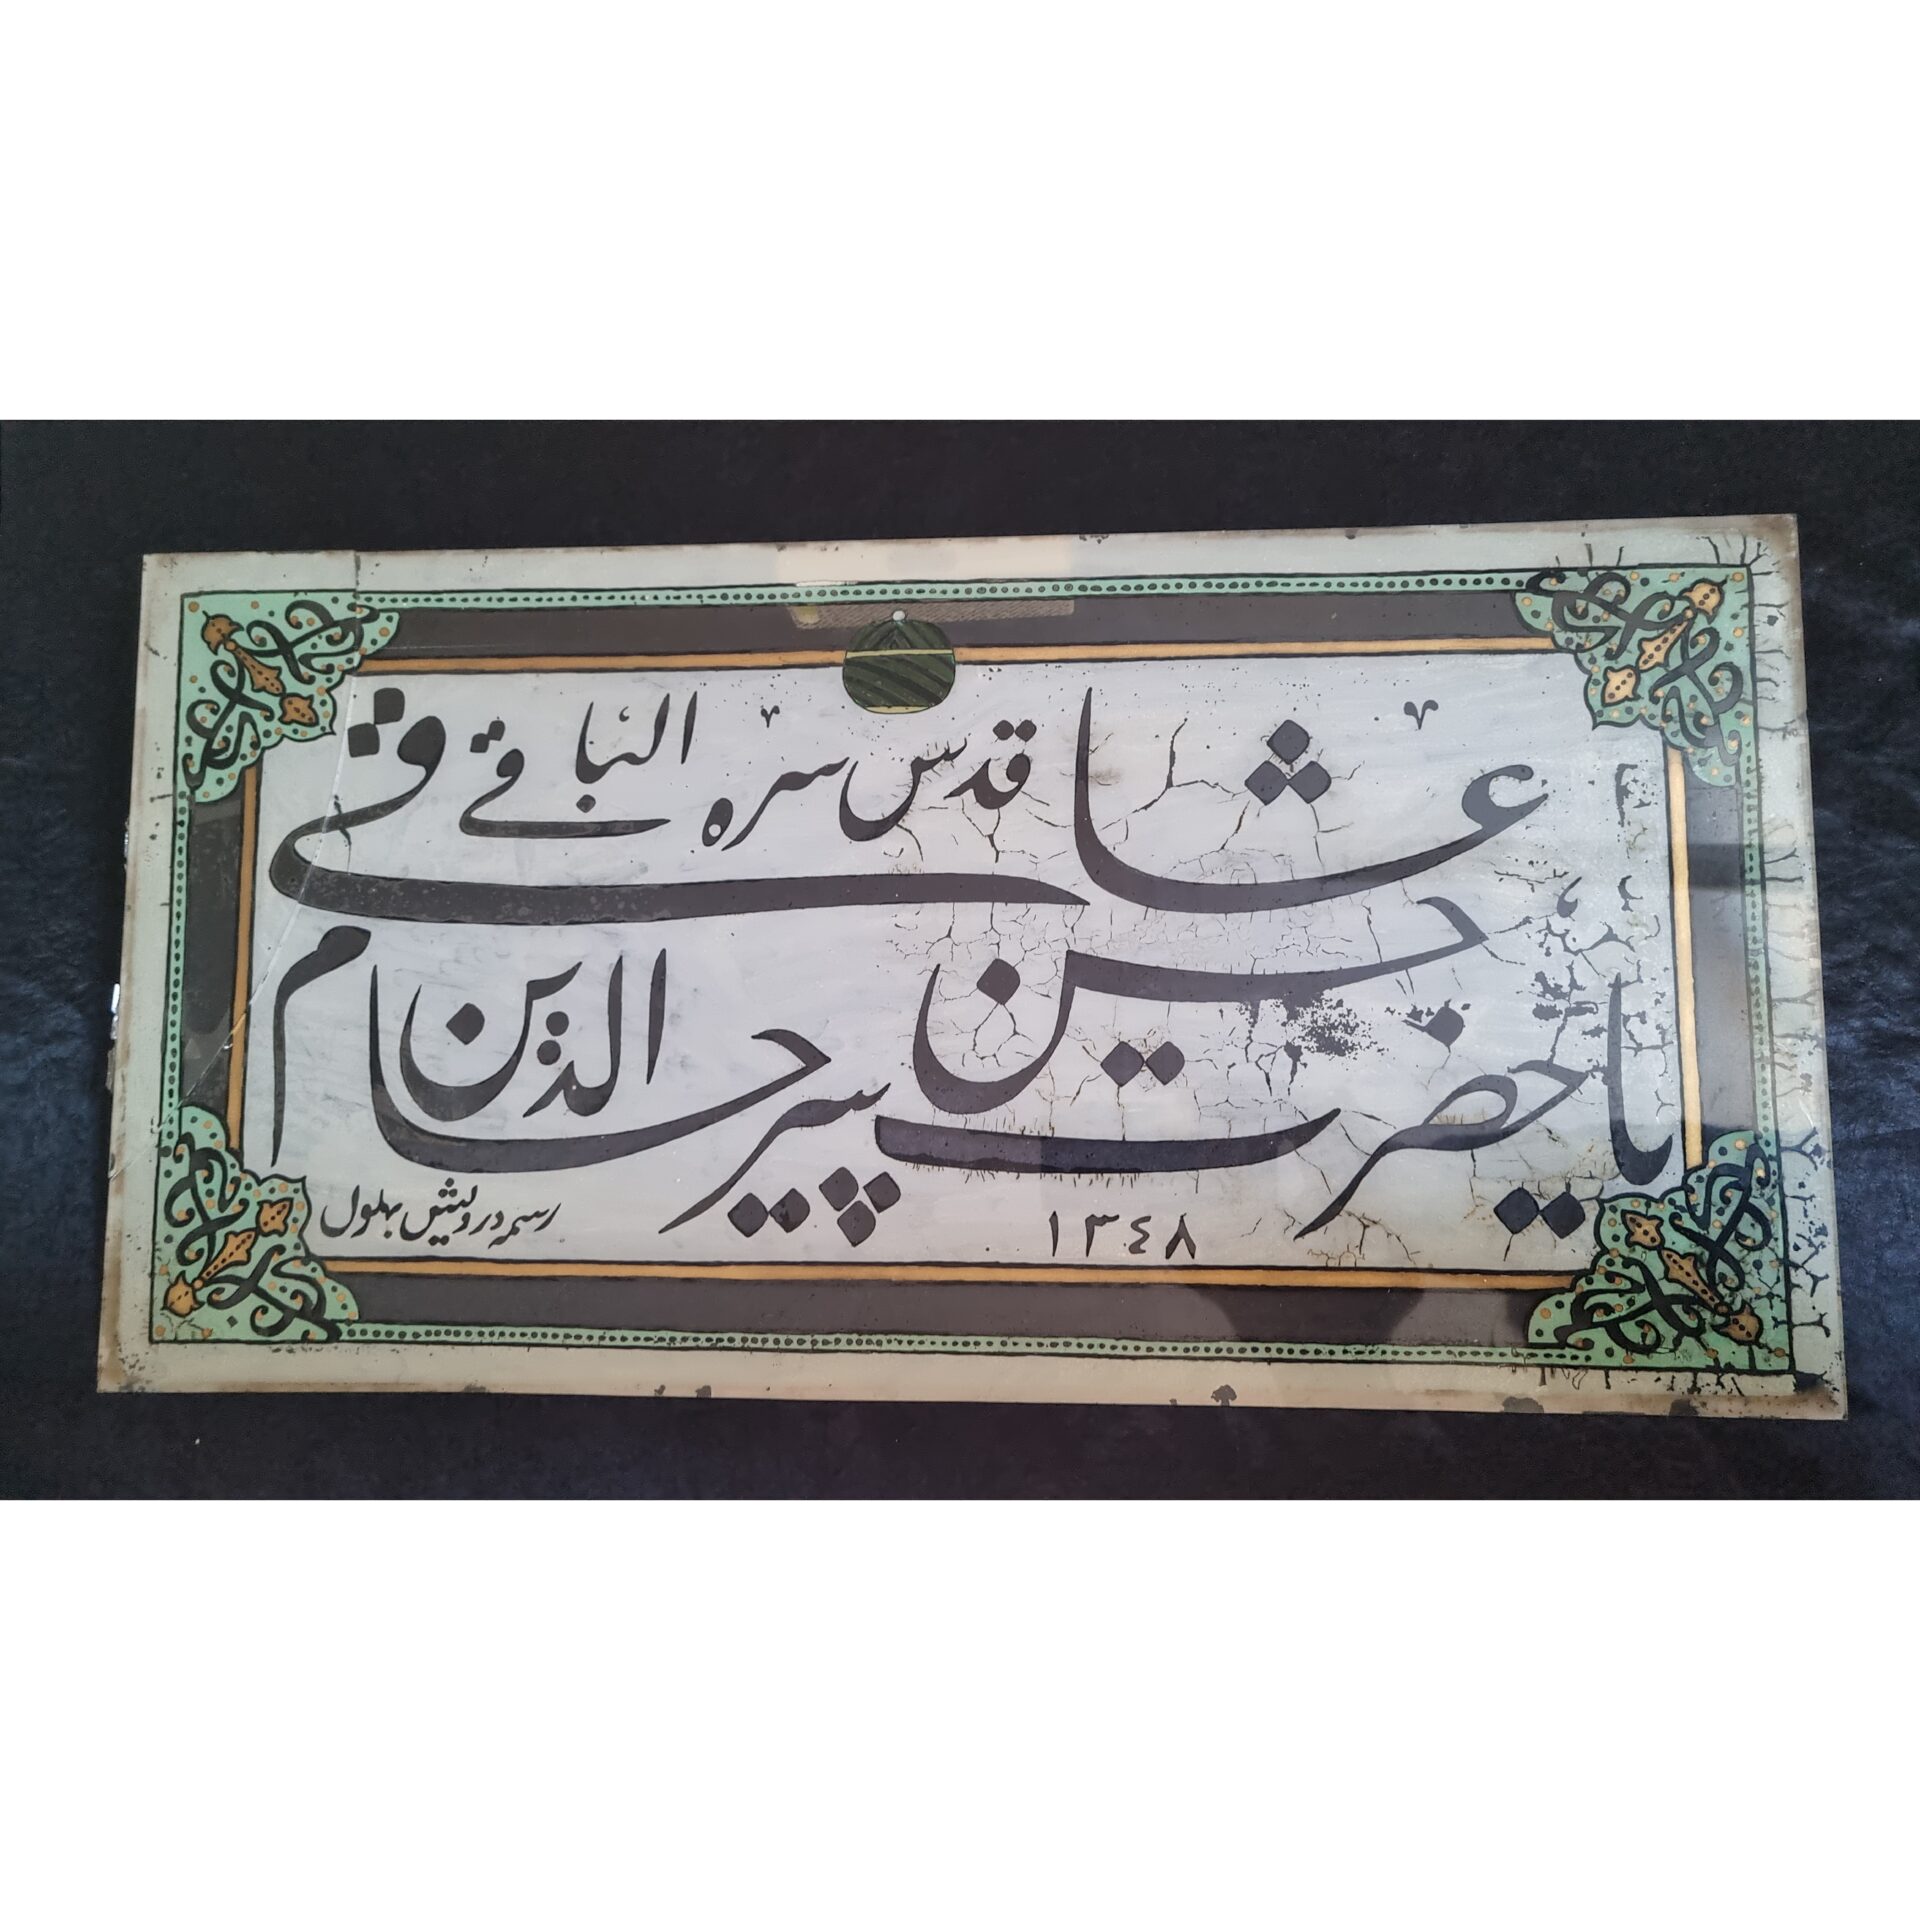 يا حضرت پير حسن حسام الدين
عشاقى قدس سره الباقى
١٣٤٨
رسمه درويش بهلول